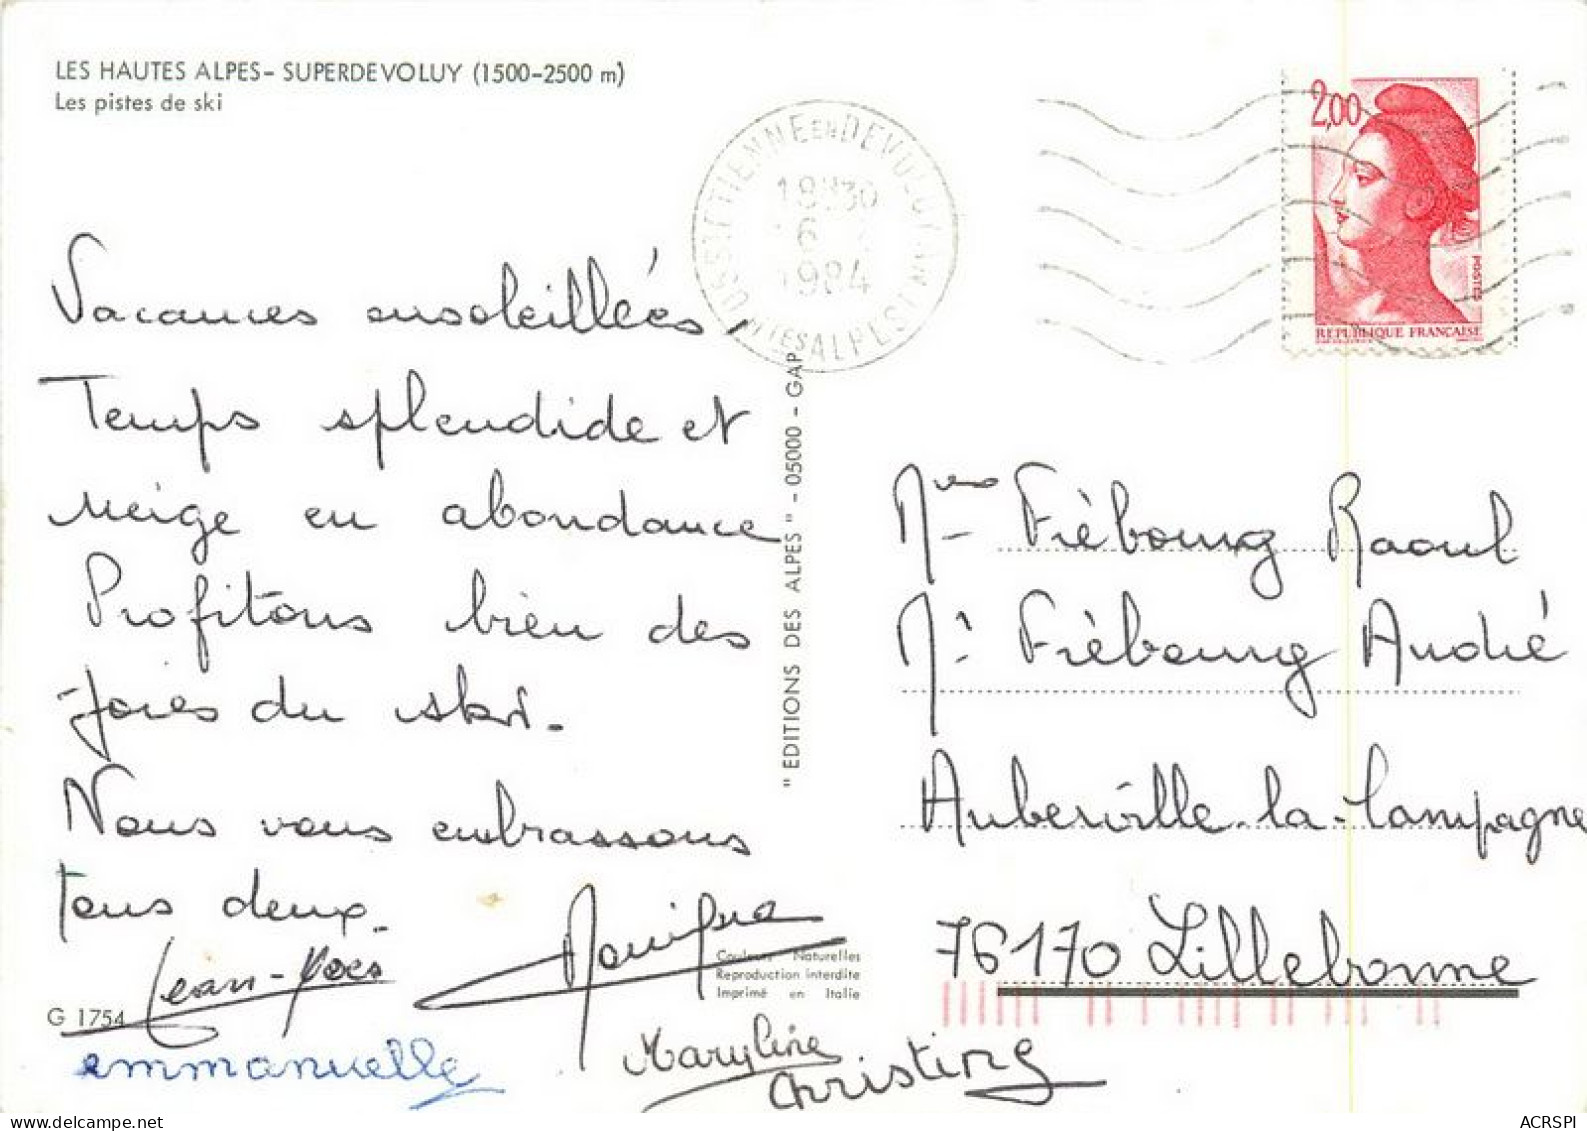 LES HAUTES ALPES - SUPERDEVOLUY (1500-2500 m)
Les pistes de ski
Vacances ensoleillées,
Temps splendide et
neige en abondance
Profitons bien des
joies du ski.
Nous vous embrassons
tous deux.
Jean-Yves
emmanuelle
Maryline
Christine
G 1754
Couleurs Naturelles
Reproduction interdite
Imprimé en Italie
"EDITIONS DES ALPES" - 05000 - GAP
ST ETIENNE EN DEVOLUY
18H30
6
1984
HTES ALPES
2,00
POSTES
REPUBLIQUE FRANÇAISE
Fièbourg Raoul
Mr Fièbourg André
Auberville-la-Campagne
76170 Lillebonne
ACRSPI